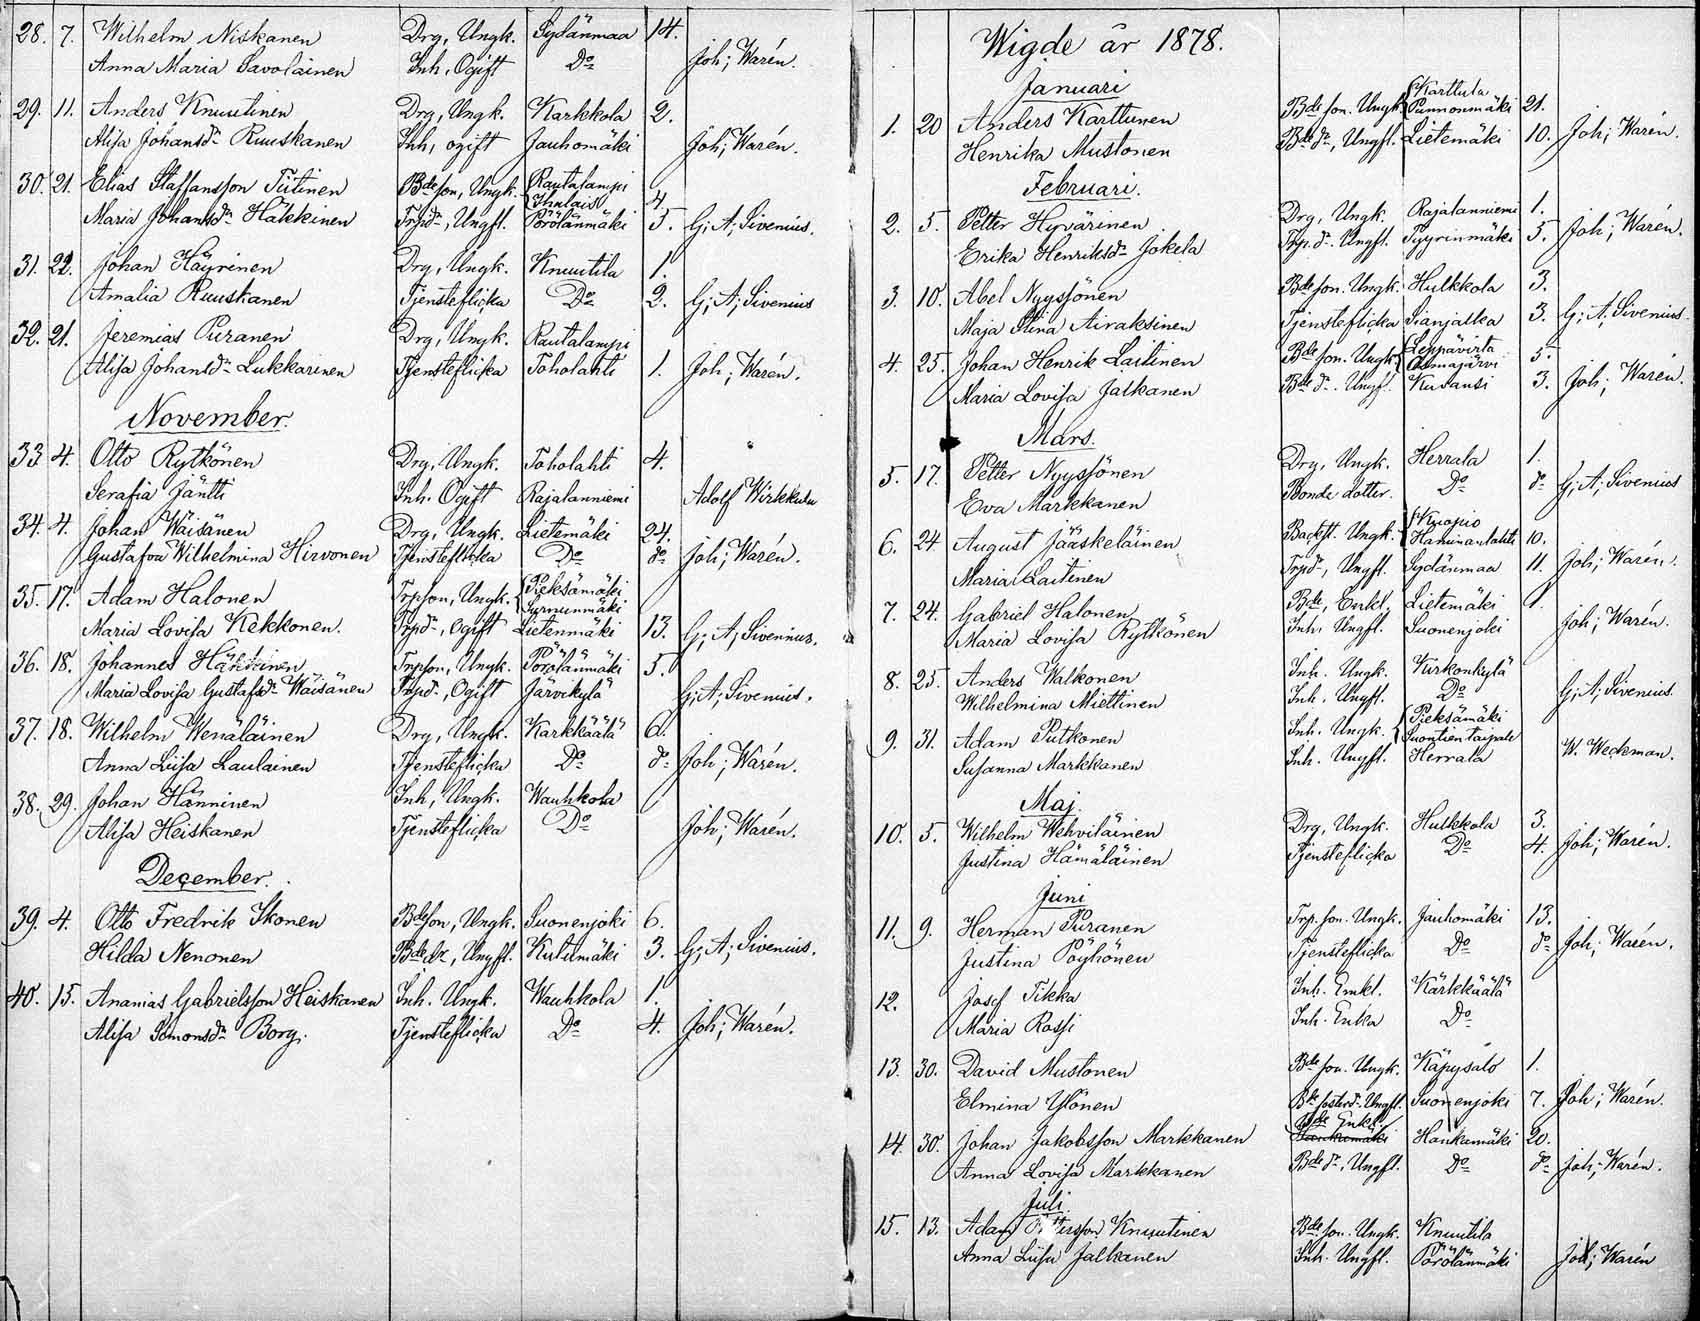 28. 7. Wilhelm Niskanen Drg, Ungk. Sydänmaa 14.
Anna Maria Savolainen Inh, Ogift Do Joh; Warén.
29. 11. Anders Knuutinen Drg, Ungk. Karkkola 2.
Alisa Johansdr Ruuskanen Inh, ogift Jauhomäki Joh; Warén.
30. 21. Elias Staffansson Tiitinen Bdeson, Ungk. Rautalampi
4.
Maria Johansdr Häkkinen Trpdr, Ungfl. Pörölänmäki 5. G; A; Sivenius.
31. 22. Johan Häyrinen Drg, Ungk. Knuutila 1.
Amalia Ruuskanen Tjensteflicka Do 2. G; A; Sivenius
32. 21. Jeremias Puranen Drg, Ungk. Rautalampi
Alisa Johansdr Lukkarinen Tjensteflicka Toholahti 1. Joh; Warén.
November.
33. 4. Otto Rytkönen Drg, Ungk. Toholahti 4.
Serafia Jäntti Inh. Ogift Rajalanniemi Adolf Wirkkula
34. 4. Johan Wäisänen Drg, Ungk. Lietemäki 24.
Gustafva Wilhelmina Hirvonen Tjensteflicka Do do Joh; Warén.
35. 17. Adam Halonen Trpson, Ungk. Pieksämäki
Surnunmäki
Maria Lovisa Kekkonen. Trpdr, Ogift Lietenmäki 13. G; A; Sivenius.
36. 18. Johannes Häkkinen Trpson, Ungk. Pörölänmäki 5.
Maria Lovisa Gustafsdr Wäisänen Trpdr, Ogift Järvikylä G; A; Sivenius.
37. 18. Wilhelm Wenäläinen Drg, Ungk. Karkkäälä 6.
Anna Liisa Laulainen Tjensteflicka Do do Joh; Warén.
38. 29. Johan Hänninen Inh, Ungk. Wauhkola
Alisa Heiskanen Tjensteflicka Do Joh; Warén.
December.
39. 4. Otto Fredrik Ikonen Bdeson, Ungk. Suonenjoki 6.
Hilda Nenonen Bdedr, Ungfl. Kutumäki 3. G; A; Sivenius.
40. 15. Ananias Gabrielsson Heiskanen Inh. Ungk. Wauhkola 1.
Alisa Simonsdr Borg. Tjensteflicka Do 4. Joh; Warén.
Wigde år 1878.
Januari
Karttula
1. 20 Anders Karttunen Bde son. Ungk. Punnonmäki 21.
Henrika Mustonen Bde dr, Ungfl. Lietemäki 10. Joh; Warén.
Februari.
2. 5. Petter Hyvärinen Drg, Ungk. Rajalanniemi 1.
Erika Henriksdr Jokela Trp. dr. Ungfl. Tyyrinmäki 5. Joh; Warén.
3. 10. Abel Nyyssönen Bde son. Ungk. Hulkkola 3.
Maja Stina Airaksinen Tjensteflicka Sianjalka 3. G; A; Sivenius.
4. 25. Johan Henrik Laitinen Bde son. Ungk. Leppävirta
Osmajärvi 5.
Maria Lovisa Jalkanen Bde dr. Ungf. Kuvansi 3. Joh; Warén.
Mars.
5. 17. Petter Nyyssönen Drg, Ungk. Herrala 1.
Eva Markkanen Bonde dotter. Do do G; A; Sivenius
6. 24 August Jääskeläinen Backst. Ungk. Kuopio
Haminanlahti 10.
Maria Laitinen Trpdr, Ungfl. Sydänmaa 11. Joh; Warén.
7. 24. Gabriel Halonen Bde, Enkl. Lietemäki 1.
Maria Lovisa Rytkönen Inh. Ungfl. Suonenjoki Joh; Warén.
8. 25. Anders Walkonen Inh. Ungk. Kirkonkylä
Wilhelmina Miettinen Inh. Ungfl. Do G; A; Sivenius.
9. 31. Adam Putkonen Inh. Ungk. Pieksämäki
Suontientaipale
Susanna Markkanen Inh. Ungfl. Herrala W. Weckman.
Maj.
10. 5. Wilhelm Wehviläinen Drg, Ungk. Hulkkola 3.
Justina Hämäläinen Tjensteflicka Do 4. Joh; Warén.
Juni
11. 9. Herman Puranen Trp. son. Ungk. Jauhomäki 13.
Justina Pöyhönen Tjensteflicka Do do Joh; Warén.
12. Josef Tikka Inh. Enkl. Kärkkäälä
Maria Rossi Inh. Enka Do
13. 30. David Mustonen Bde son. Ungk. Käpysalo 1.
Elmina Ylönen Bde fosterdr. Ungfl. Suonenjoki 7. Joh; Warén.
14. 30. Johan Jakobsson Markkanen Bde Enkl. Hankamäki Hankamäki 20.
Anna Lovisa Markkanen Bde dr, Ungfl. Do do Joh; Warén.
Juli
15. 13. Adam Pettersson Knuutinen Bde son. Ungk. Knuutila
Anna Liisa Jalkanen Inh. Ungfl. Pörölänmäki Joh; Warén